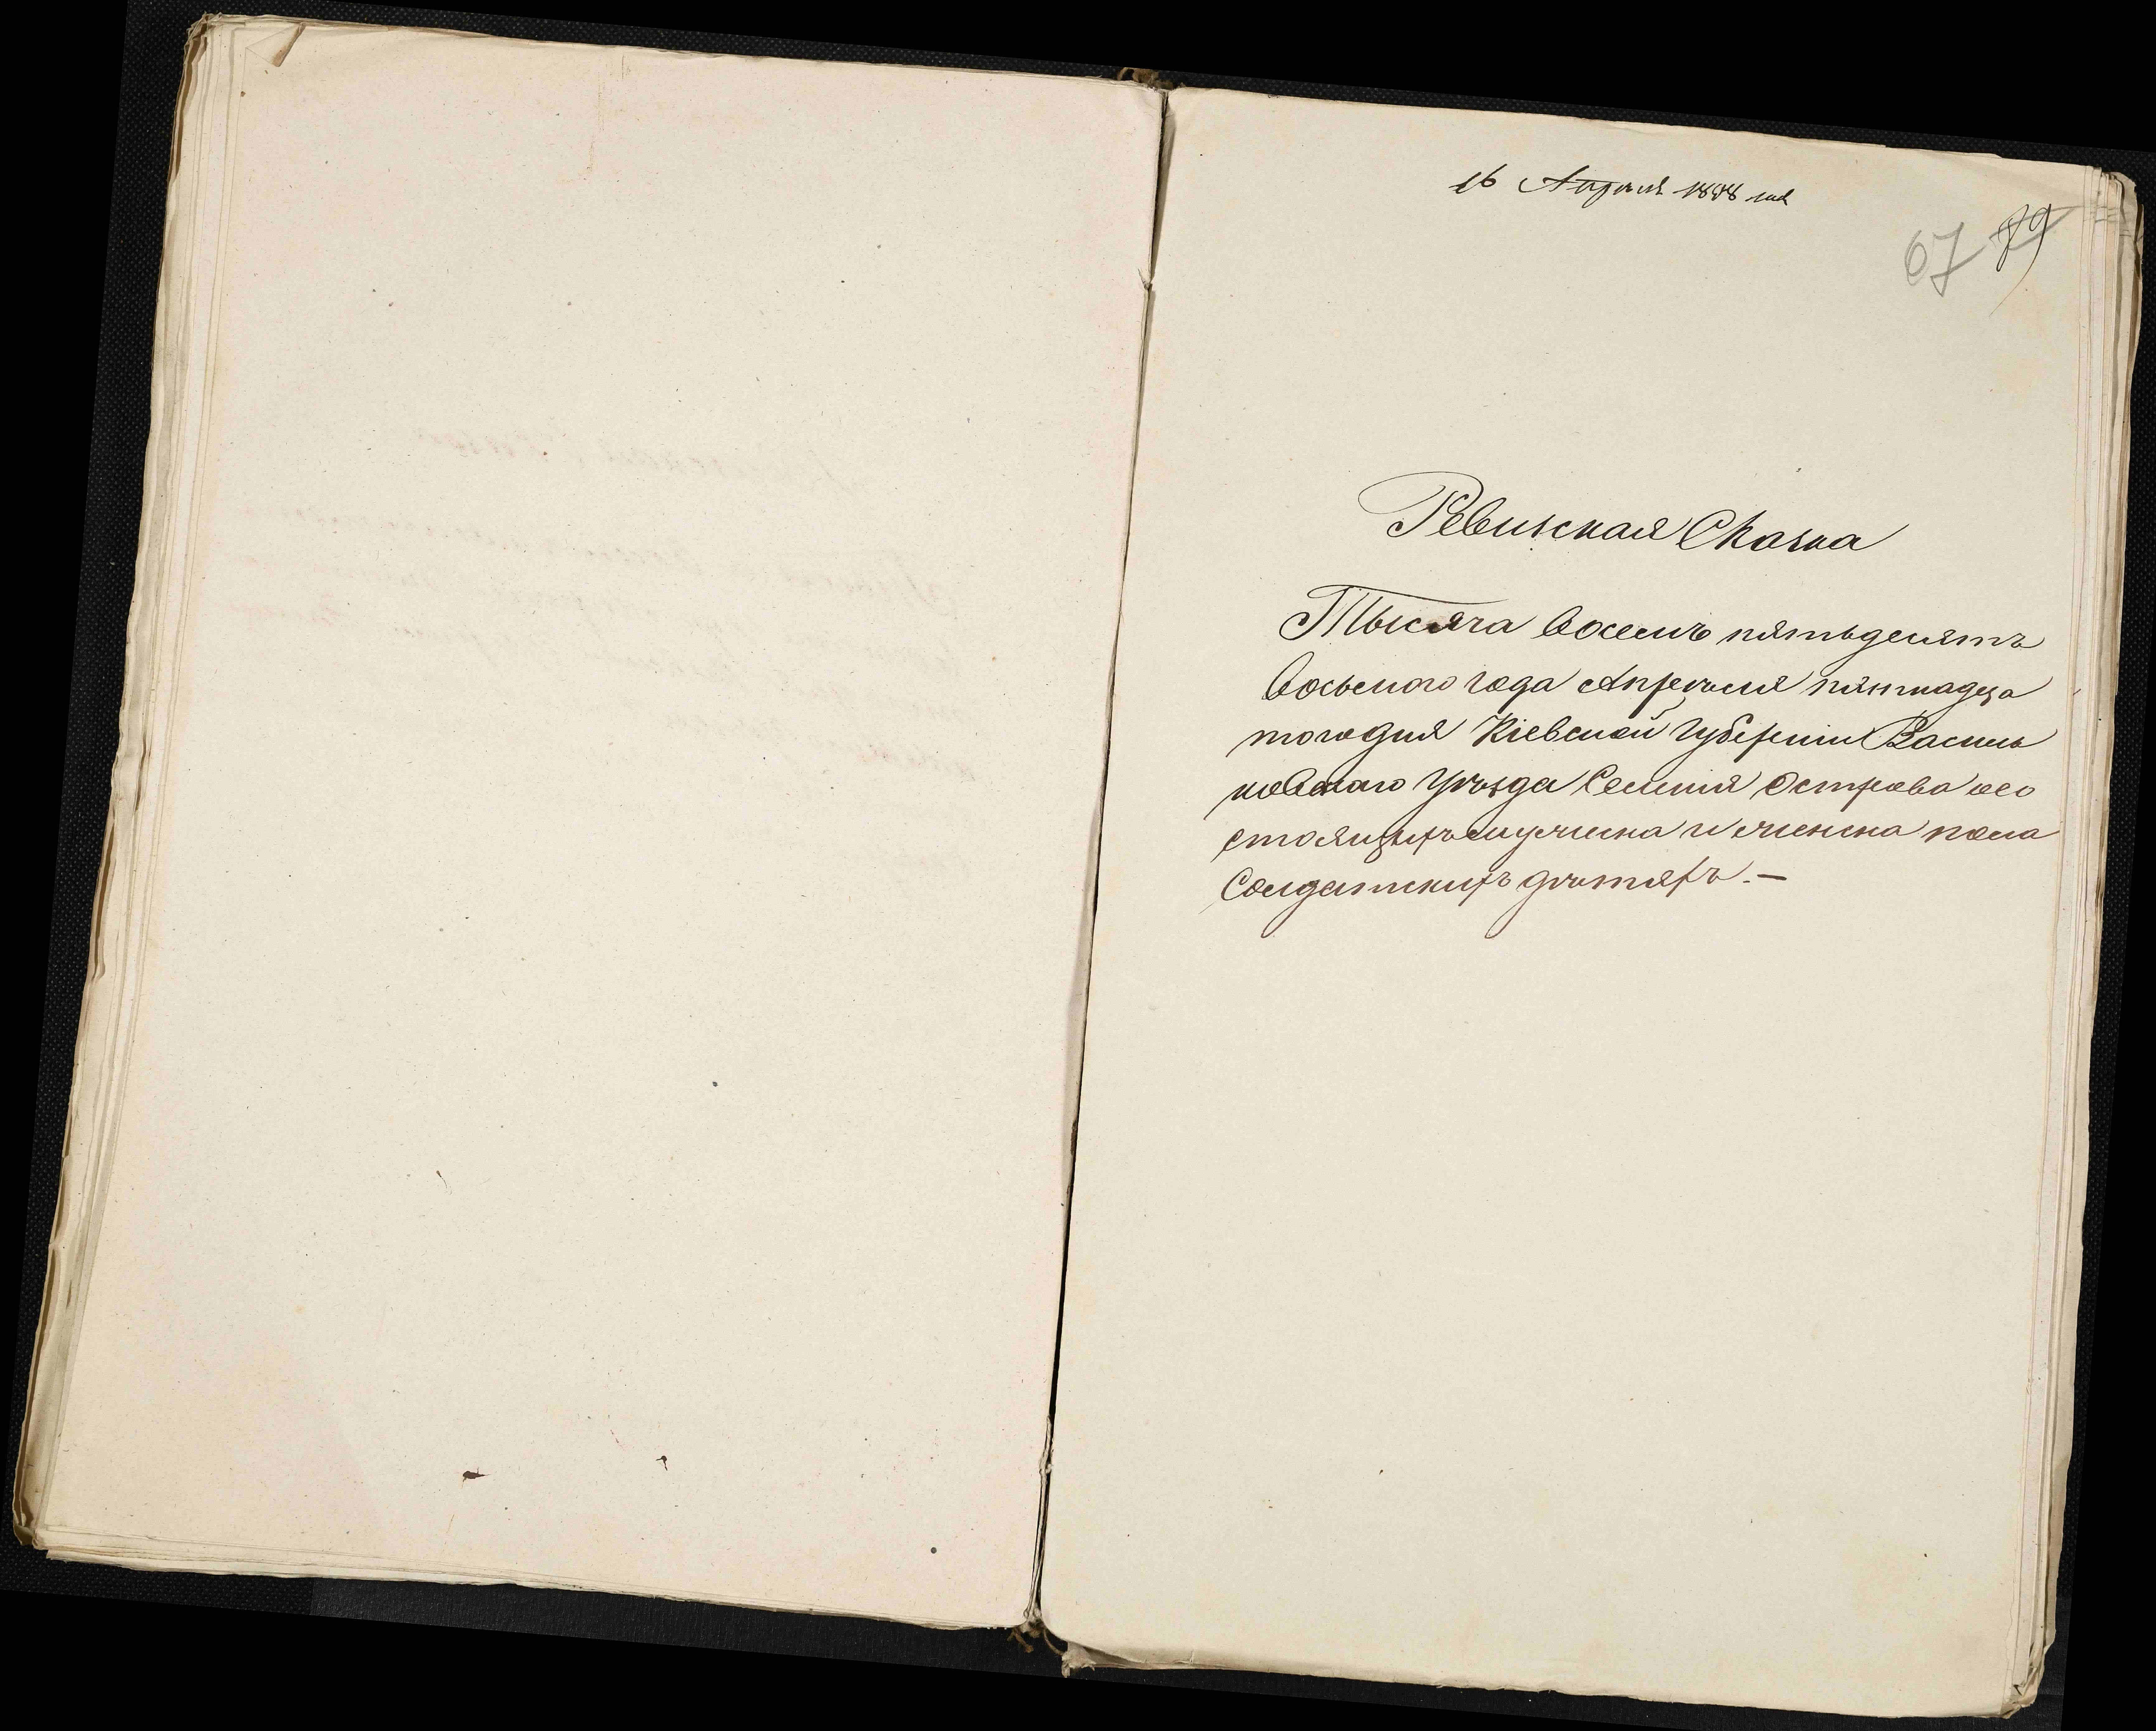 16 Апреля 1858 года
67 79
Ревизская Сказка
Тысяча восемъ пятьдесятъ
восьмого года Апреля пятнадца
того дня Кіевской Губерніи Василь
ковскаго Уѣзда Селенія Острова осо
стоящихъ мужеска и женска пола
Солдатскихъ дѣтяхъ. —